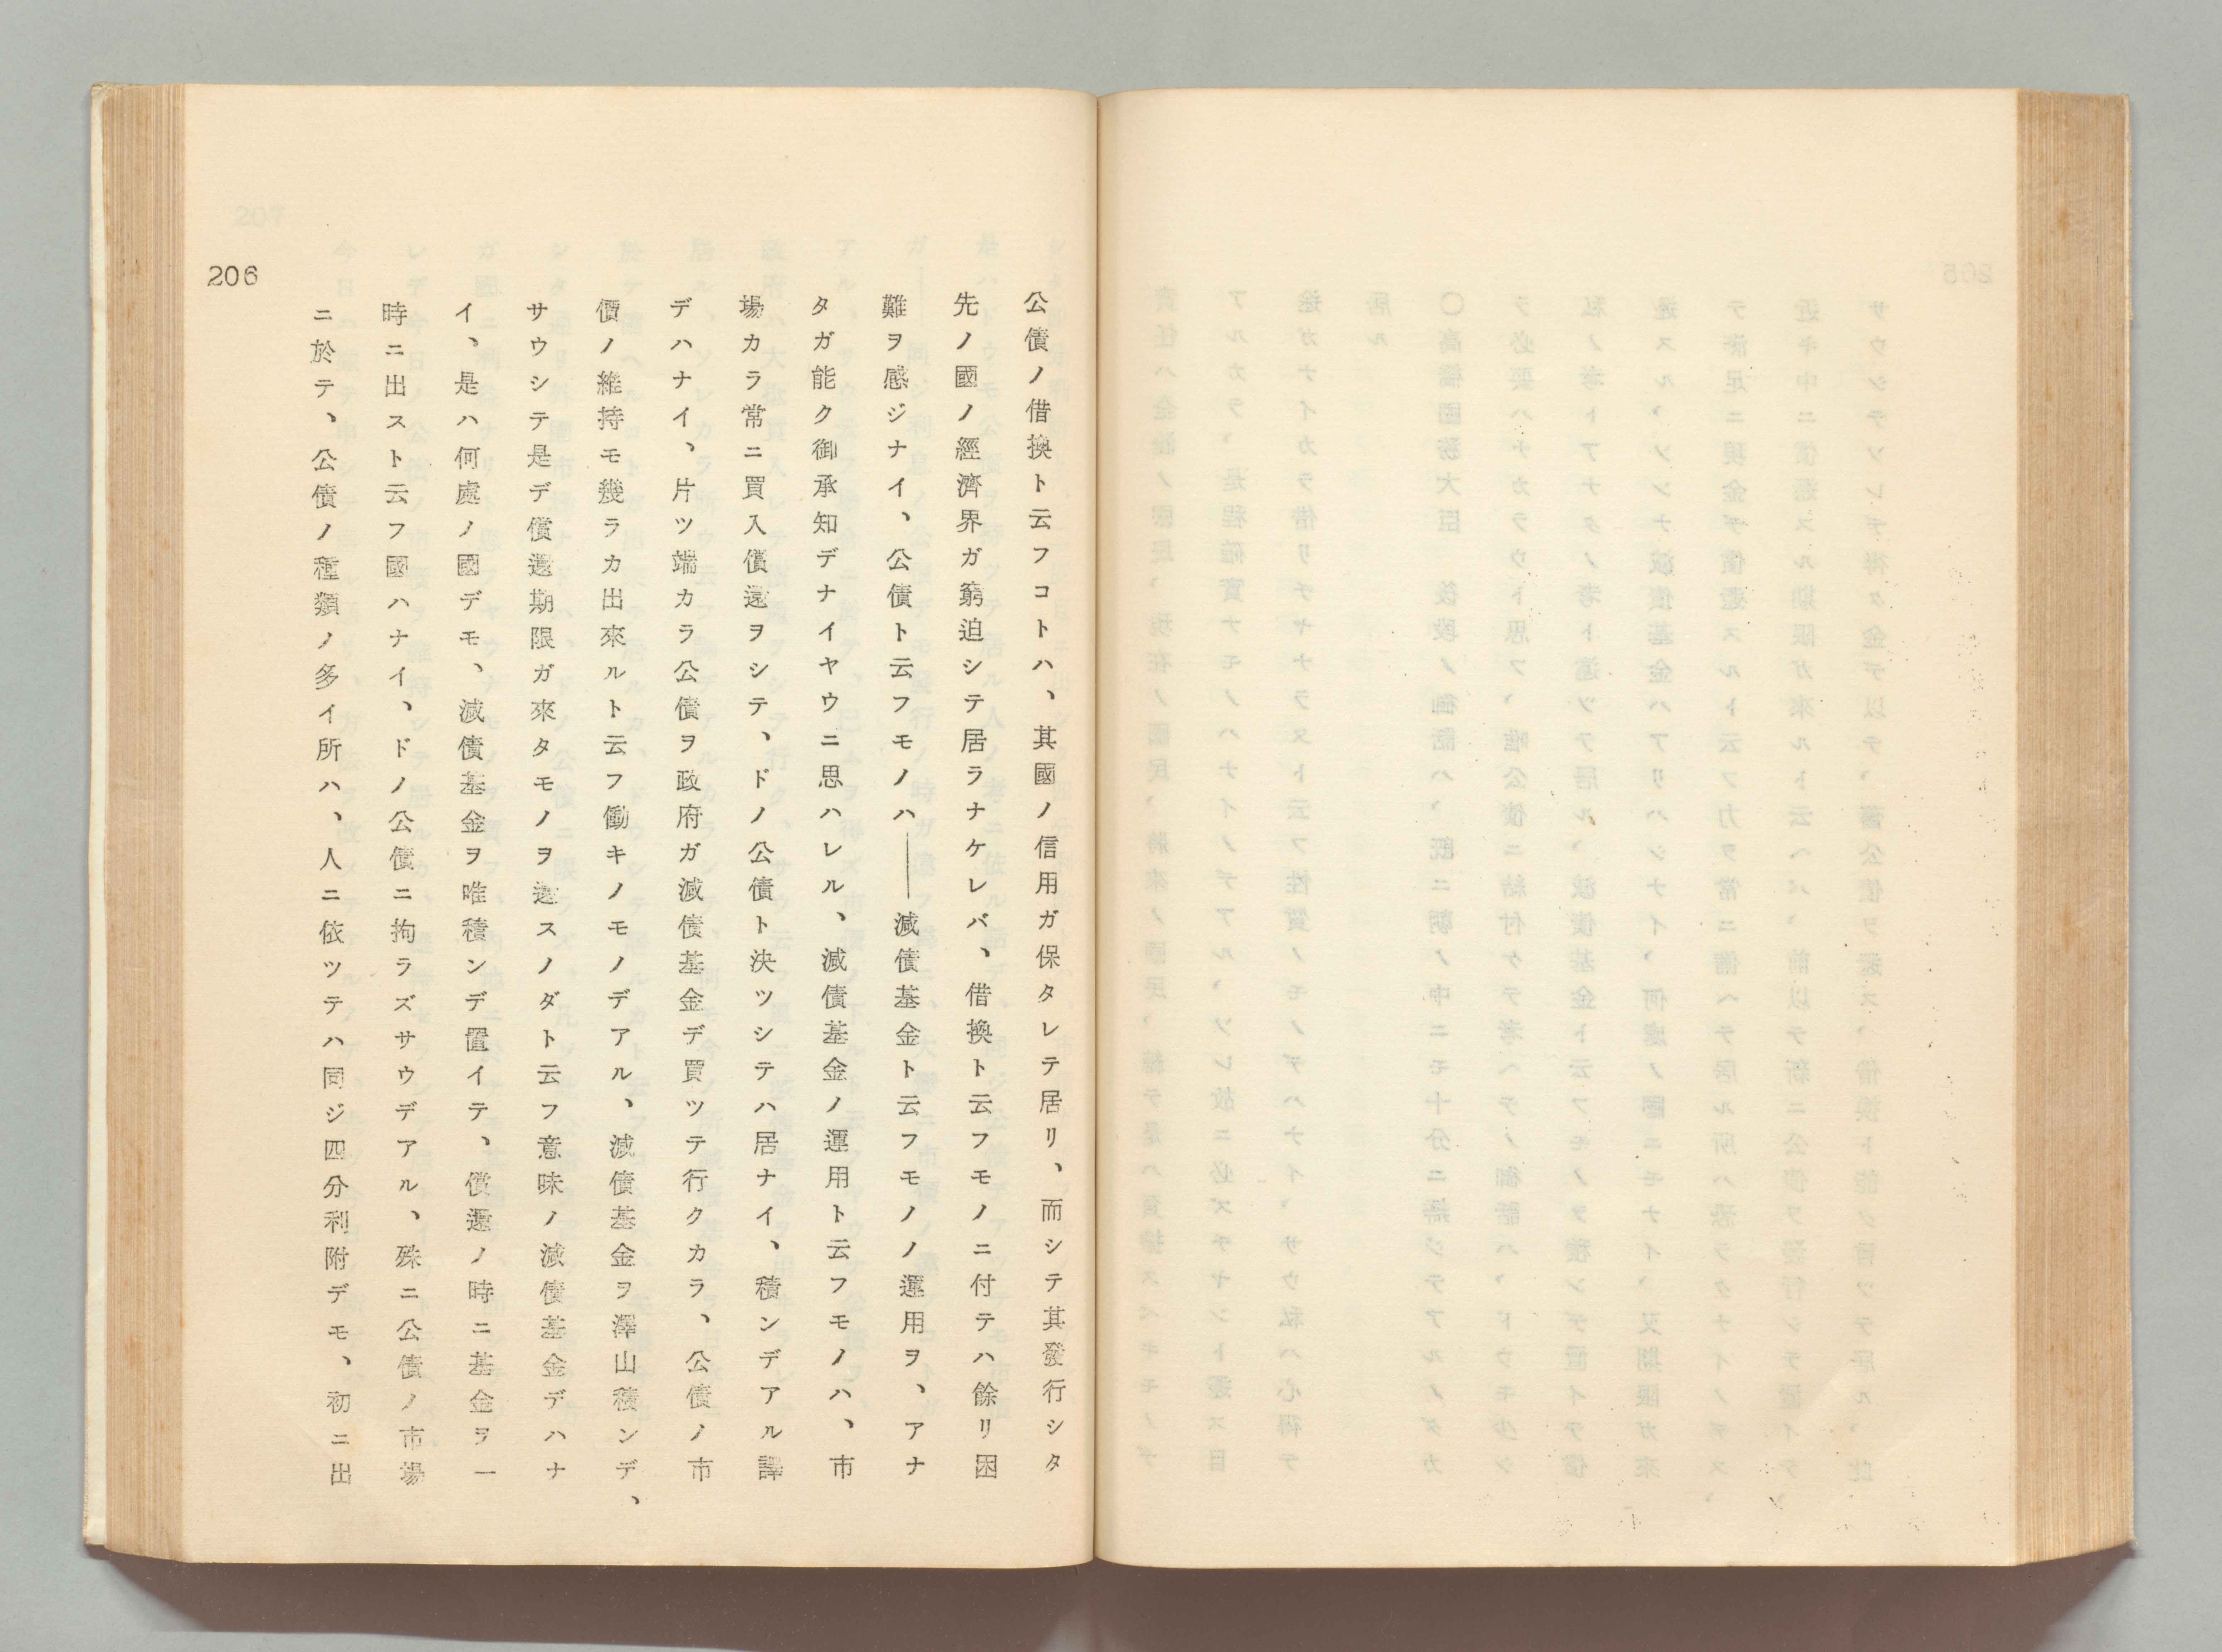 公債ノ借換ト云フコトハ、其國ノ信用ガ保タレテ居リ、而シテ其發行シタ
先ノ國ノ經濟界ガ窮迫シテ居ラナケレバ、借換ト云フモノニ付テハ餘リ困
難ヲ感ジナイ、公債ト云フモノハ――減債基金ト云フモノノ運用ヲ、アナ
タガ能ク御承知デナイヤウニ思ハレル、減債基金ノ運用ト云フモノハ、市
場カラ常ニ買入償還ヲシテ、ドノ公債ト決ツシテハ居ナイ、積ンデアル譯
デハナイ、片ツ端カラ公債ヲ政府ガ減債基金デ買ツテ行クカラ、公債ノ市
價ノ維持モ幾ラカ出來ルト云フ働キノモノデアル、減債基金ヲ澤山積ンデ、
サウシテ是デ償還期限ガ來タモノヲ還スノダト云フ意味ノ減債基金デハナ
イ、是ハ何處ノ國デモ、減債基金ヲ唯積ンデ置イテ、償還ノ時ニ基金ヲ一
時ニ出スト云フ國ハナイ、ドノ公債ニ拘ラズサウデアル、殊ニ公債ノ市場
ニ於テ、公債ノ種類ノ多イ所ハ、人ニ依ツテハ同ジ四分利附デモ、初ニ出
206